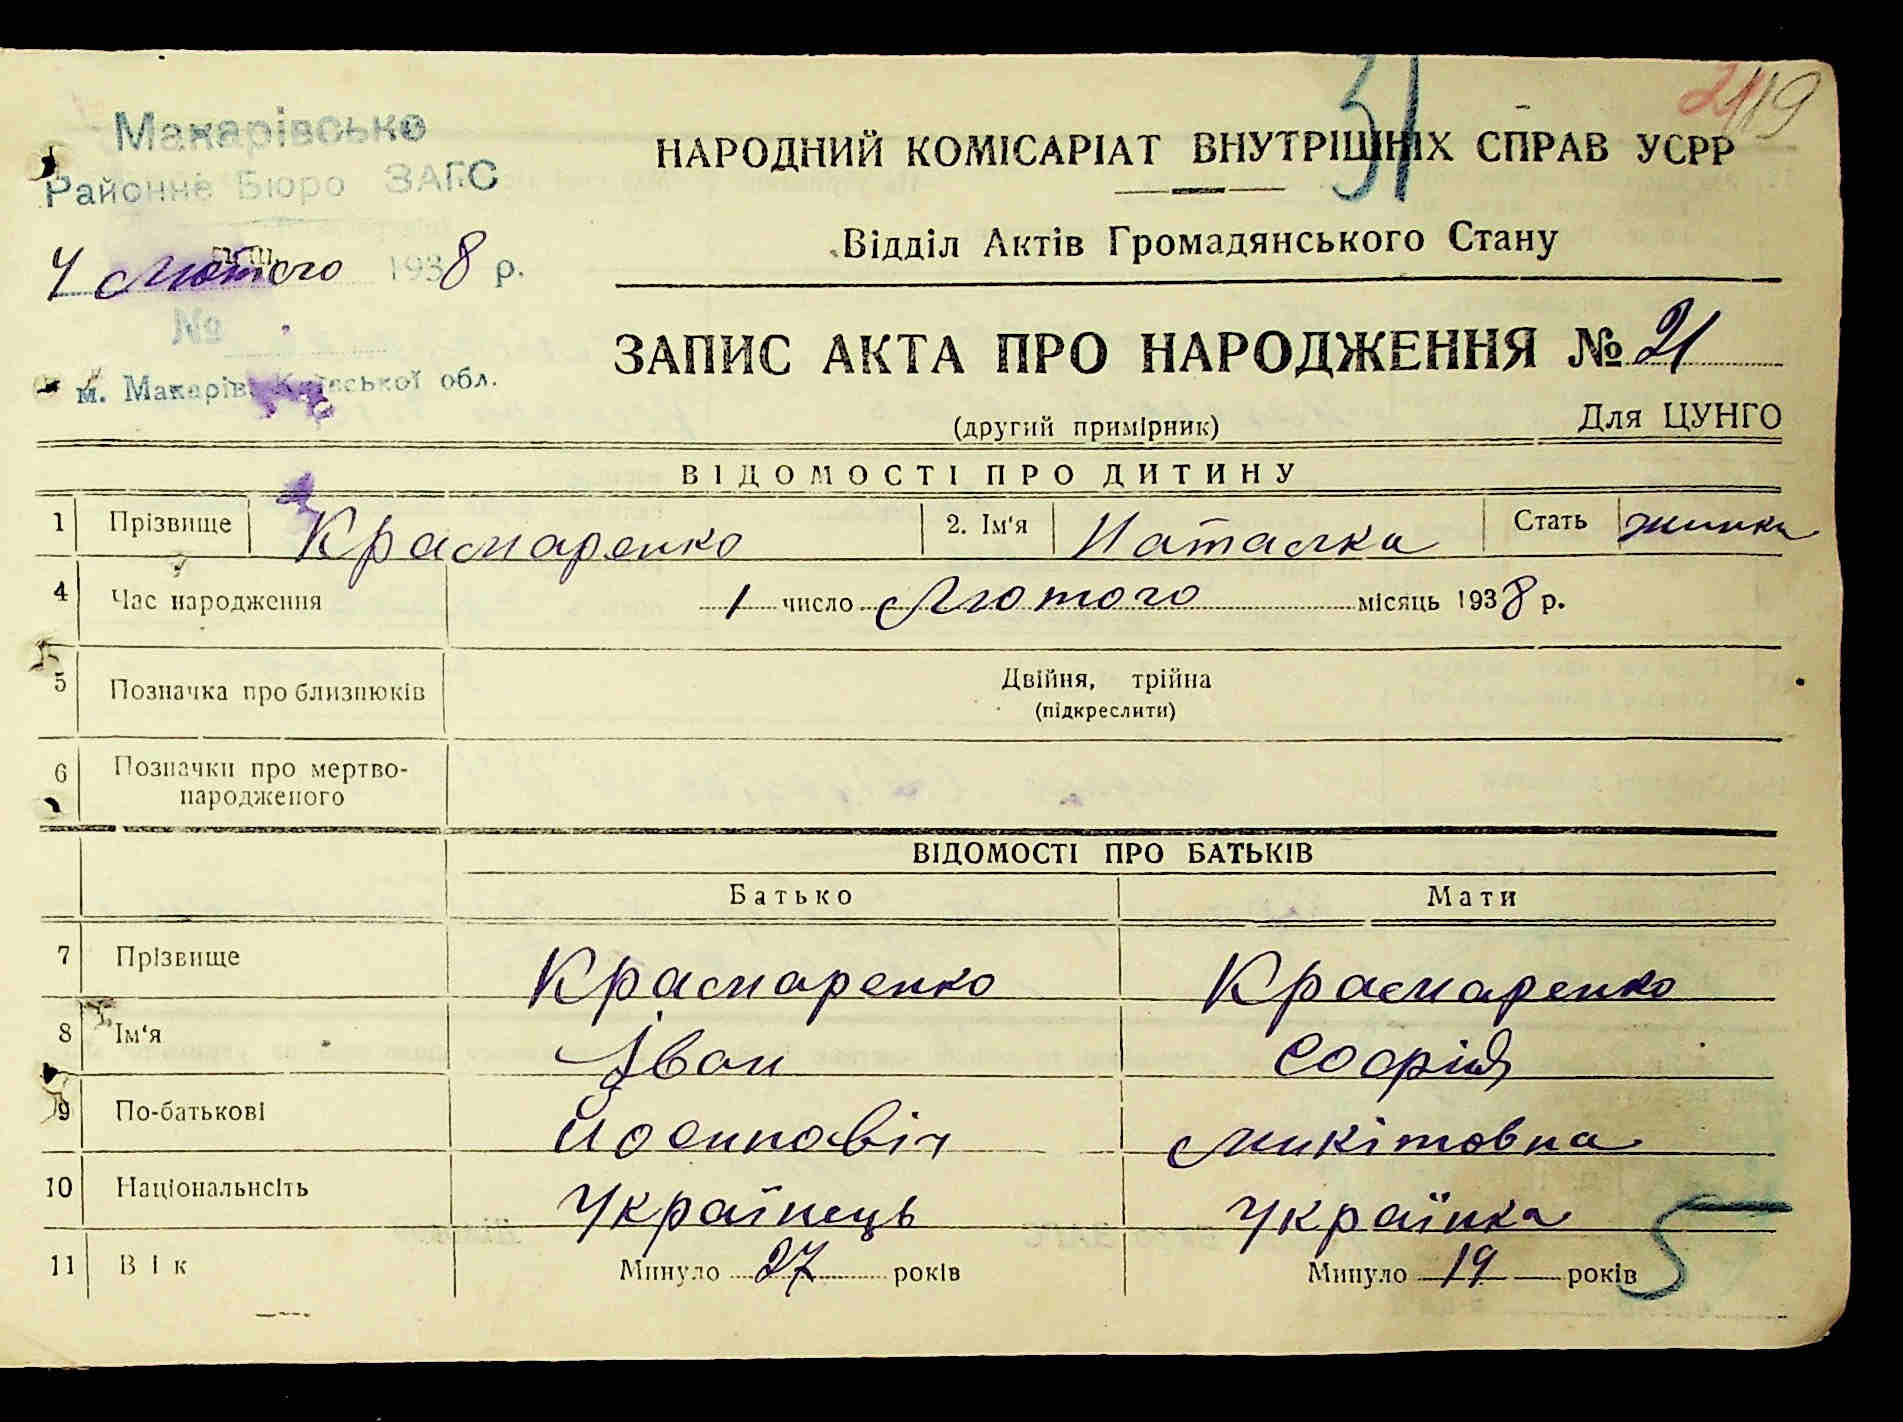 31
21 19
Макарівсько
Районне Бюро ЗАГС
4 Лютого 1938 р.
№
м. Макарів, Київської обл.
НАРОДНИЙ КОМІСАРІАТ ВНУТРІШНІХ СПРАВ УСРР
Відділ Актів Громадянського Стану
ЗАПИС АКТА ПРО НАРОДЖЕННЯ № 21
(другий примірник) Для ЦУНГО
ВІДОМОСТІ ПРО ДИТИНУ
1 Прізвище Краснаренко 2. Ім'я Наталка Стать жинка
4 Час народження 1 число Лютого місяць 1938 р.
5 Позначка про близнюків Двійня, трійна
(підкреслити)
6 Позначки про мертво-
народженого
ВІДОМОСТІ ПРО БАТЬКІВ
Батько Мати
7 Прізвище Краснаренко Краснаренко
8 Ім'я Іван Софія
9 По-батькові Йосиповіч Микітовна
10 Національнсіть Українець Українка
11 Вік Минуло 27 років Минуло 19 років
5